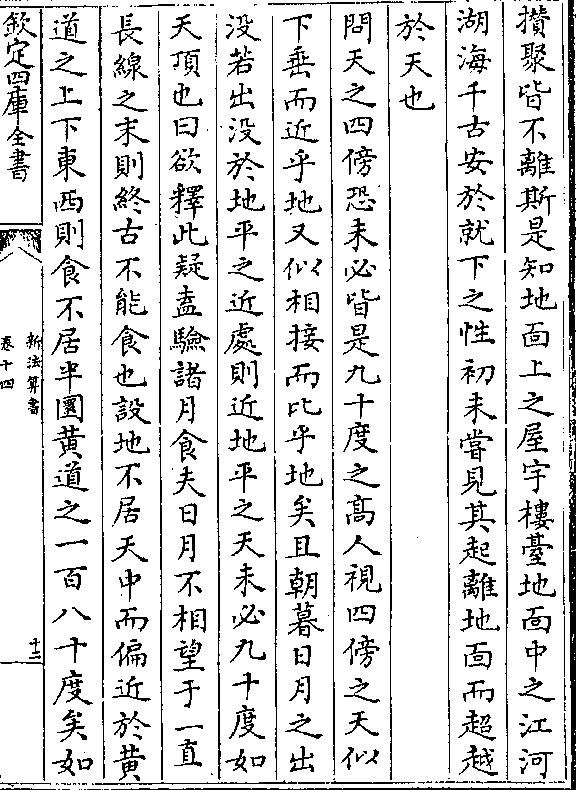 攅聚皆不離斯是知地面上之屋宇樓臺地面中之江河
湖海千古安於就下之性初未嘗見其起離地面而超越
於天也
問天之四傍恐未必皆是九十度之髙人視四傍之天似
下垂而近乎地又似相接而比乎地矣且朝暮日月之出
没若出没於地平之近處則近地平之天未必九十度如
天頂也曰欲釋此疑盍驗諸月食夫日月不相望于一直
長線之末則終古不能食也設地不居天中而偏近於黄
道之上下東西則食不居半圜黄道之一百八十度矣如
欽定四庫全書
新法算書
卷十四
十二